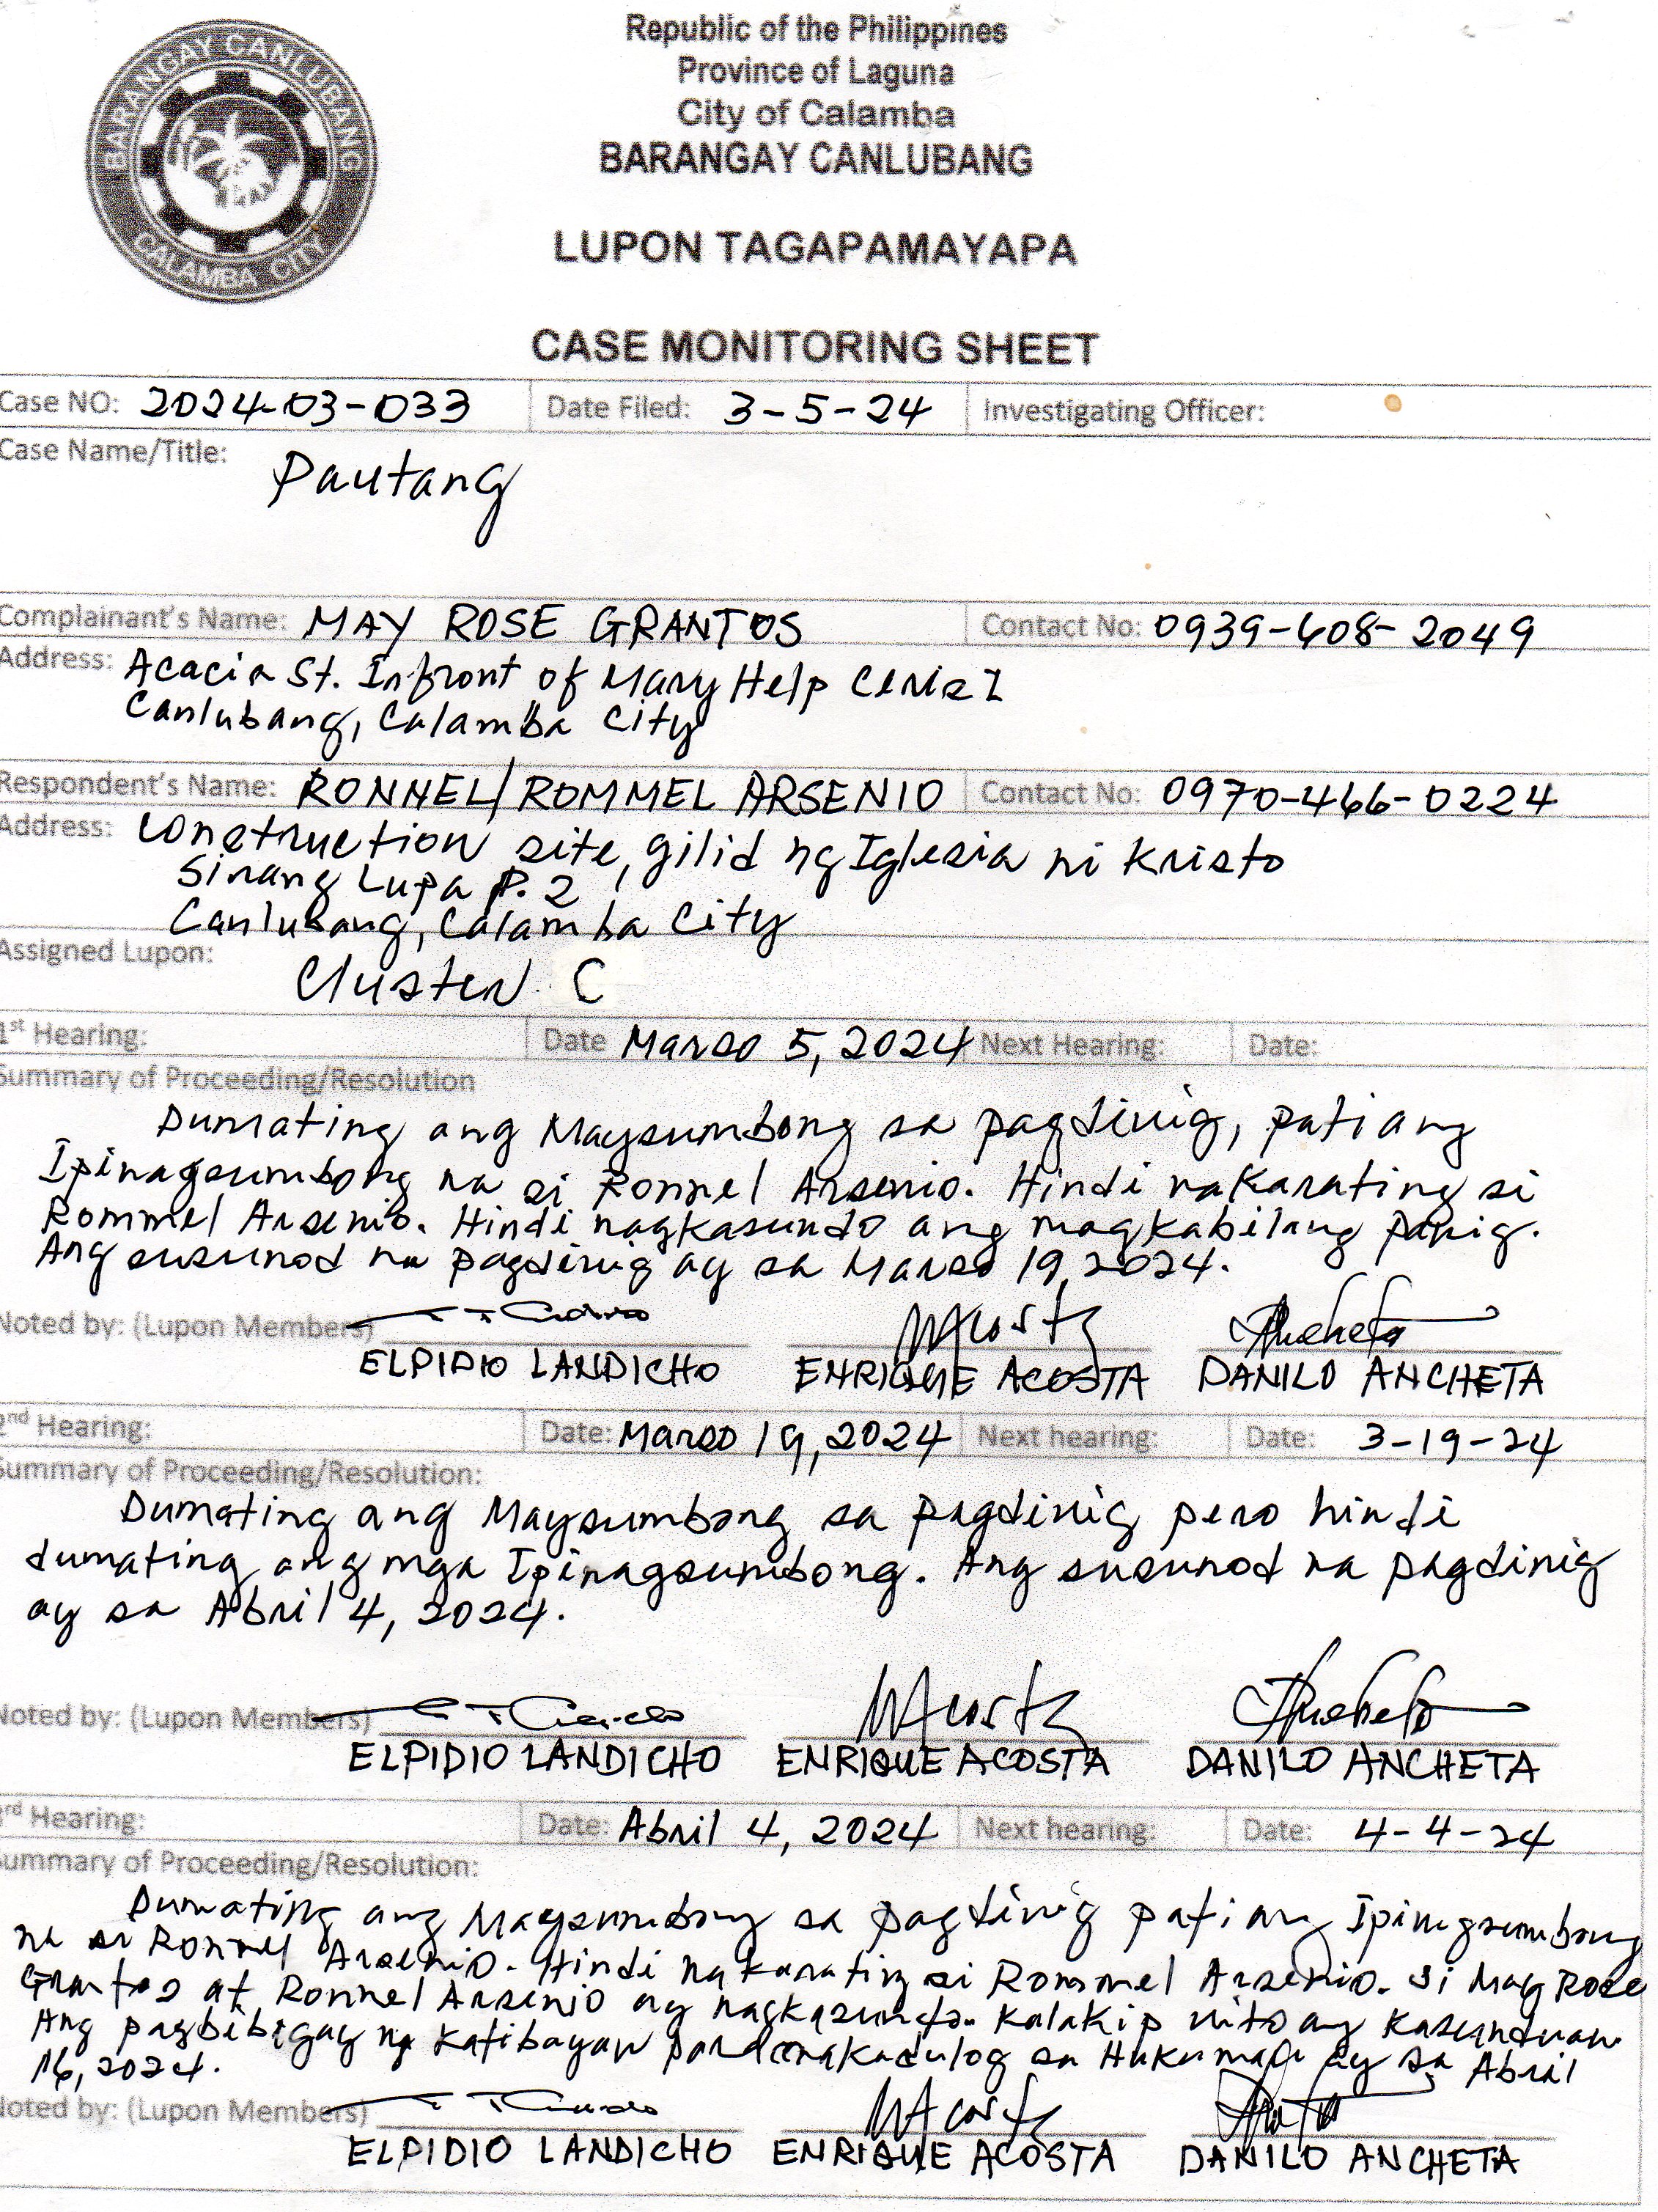 BARANGAY CANLUBANG
CALAMBA CITY
Republic of the Philippines
Province of Laguna
City of Calamba
BARANGAY CANLUBANG
LUPON TAGAPAMAYAPA
CASE MONITORING SHEET
Case NO: 2024-03-033 Date Filed: 3-5-24 Investigating Officer:
Case Name/Title: Pautang
Complainant's Name: MAY ROSE GRANTOS Contact No: 0939-608-2049
Address: Acacia St. Infront of Mary Help
Canlubang, Calamba City
Respondent's Name: RONNEL/ROMMEL ARSENIO Contact No: 0970-466-0224
Address: Construction site, gilid ng Iglesia ni Kristo
Sirang Lupa P. 2
Canlubang, Calamba City
Assigned Lupon: Cluster C
1st Hearing: Date Marso 5, 2024 Next Hearing: Date:
Summary of Proceeding/Resolution
Dumating ang Maysumbong sa pagdinig, pati ang
Ipinagsumbong na si Ronnel Arsenio. Hindi nakarating si
Rommel Arsenio. Hindi nagkasundo ang magkabilang panig.
Ang susunod na pagdinig ay sa Marso 19, 2024.
Noted by: (Lupon Members)
ELPIDIO LANDICHO ENRIQUE ACOSTA DANILO ANCHETA
2nd Hearing: Date: Marso 19, 2024 Next hearing: Date: 3-19-24
Summary of Proceeding/Resolution:
Dumating ang Maysumbong sa pagdinig pero hindi
dumating ang mga Ipinagsumbong. Ang susunod na pagdinig
ay sa Abril 4, 2024.
Noted by: (Lupon Members)
ELPIDIO LANDICHO ENRIQUE ACOSTA DANILO ANCHETA
3rd Hearing: Date: Abril 4, 2024 Next hearing: Date: 4-4-24
Summary of Proceeding/Resolution:
Dumating ang Maysumbong sa pagdinig pati ang Ipinagsumbong
na si Ronnel Arsenio. Hindi nakarating si Rommel Arsenio. Si May Rose
Grantos at Ronnel Arsenio ay nagkasundo. Kalakip nito ang kasunduan.
Ang pagbibigay ng katibayan para makadulog sa Hukuman ay sa Abril
16, 2024.
Noted by: (Lupon Members)
ELPIDIO LANDICHO ENRIQUE ACOSTA DANILO ANCHETA